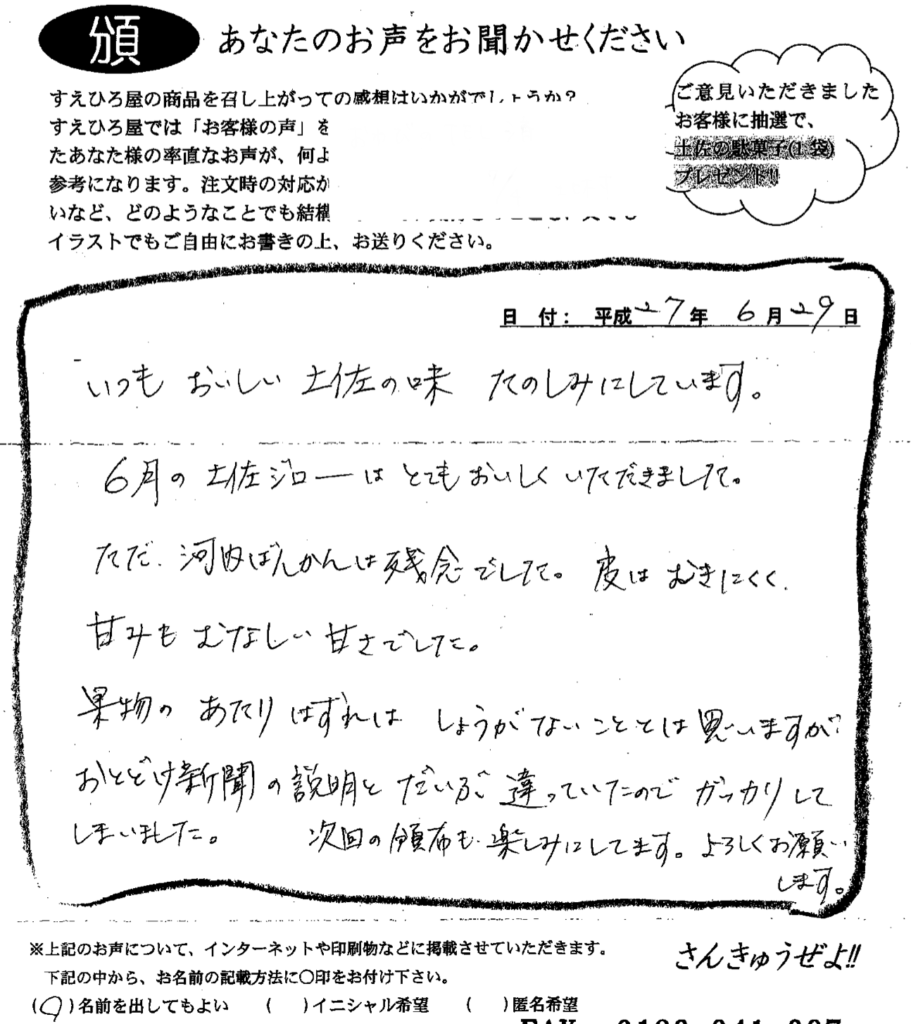 頒 あなたのお声をお聞かせください
すえひろ屋の商品を召し上がっての感想はいかがでしょうか?
すえひろ屋では「お客様の声」を
たあなた様の率直なお声が、何よ
参考になります。注文時の対応か
いなど、どのようなことでも結構
イラストでもご自由にお書きの上、お送りください。
ご意見いただきました
お客様に抽選で、
土佐の駄菓子(1袋)
プレゼント!!
日 付: 平成27年 6月29日
いつも おいしい 土佐の味 たのしみにしています。
6月の 土佐ジローは とてもおいしく いただきました。
ただ、河内ばんかんは残念でした。皮は むきにくく、
甘みも むなしい 甘さでした。
果物の あたりはずれは しょうがないこととは 思いますが
おとどけ新聞の説明と だいぶ 違っていたので ガッカリして
しまいました。 次回の頒布も 楽しみにしてます。よろしくお願い
します。
※上記のお声について、インターネットや印刷物などに掲載させていただきます。
下記の中から、お名前の記載方法に○印をお付け下さい。
(○)名前を出してもよい ( )イニシャル希望 ( )匿名希望
さんきゅうぜよ!!